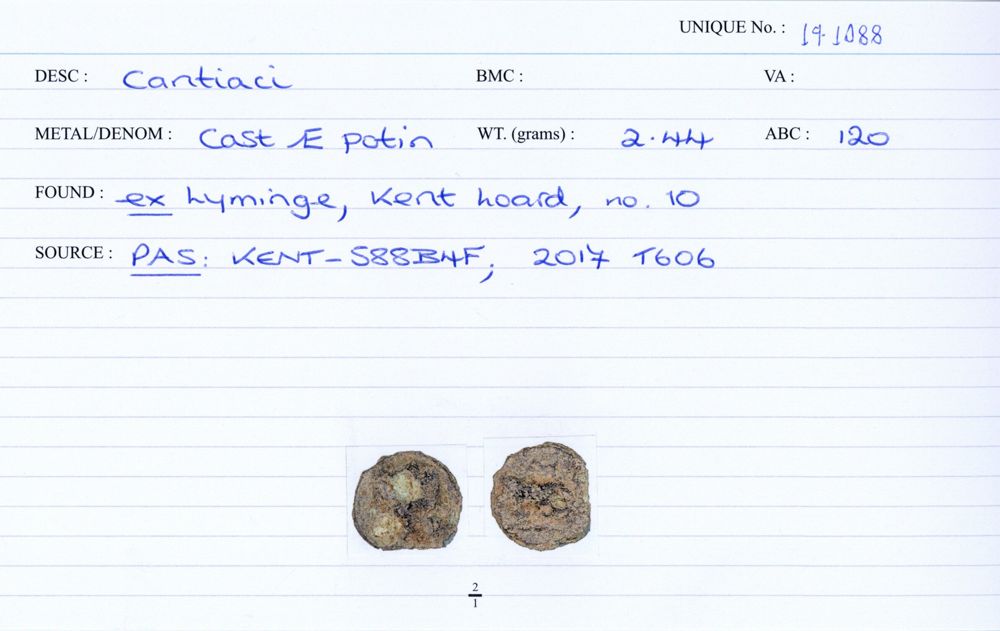 UNIQUE No. : 19.1088
DESC : Cantiaci BMC : VA :
METAL/DENOM : Cast Æ potin WT. (grams) : 2.44 ABC : 120
FOUND : ex Lyminge, Kent hoard, no. 10
SOURCE : PAS: KENT-S88B4F; 2017 T606
2
1